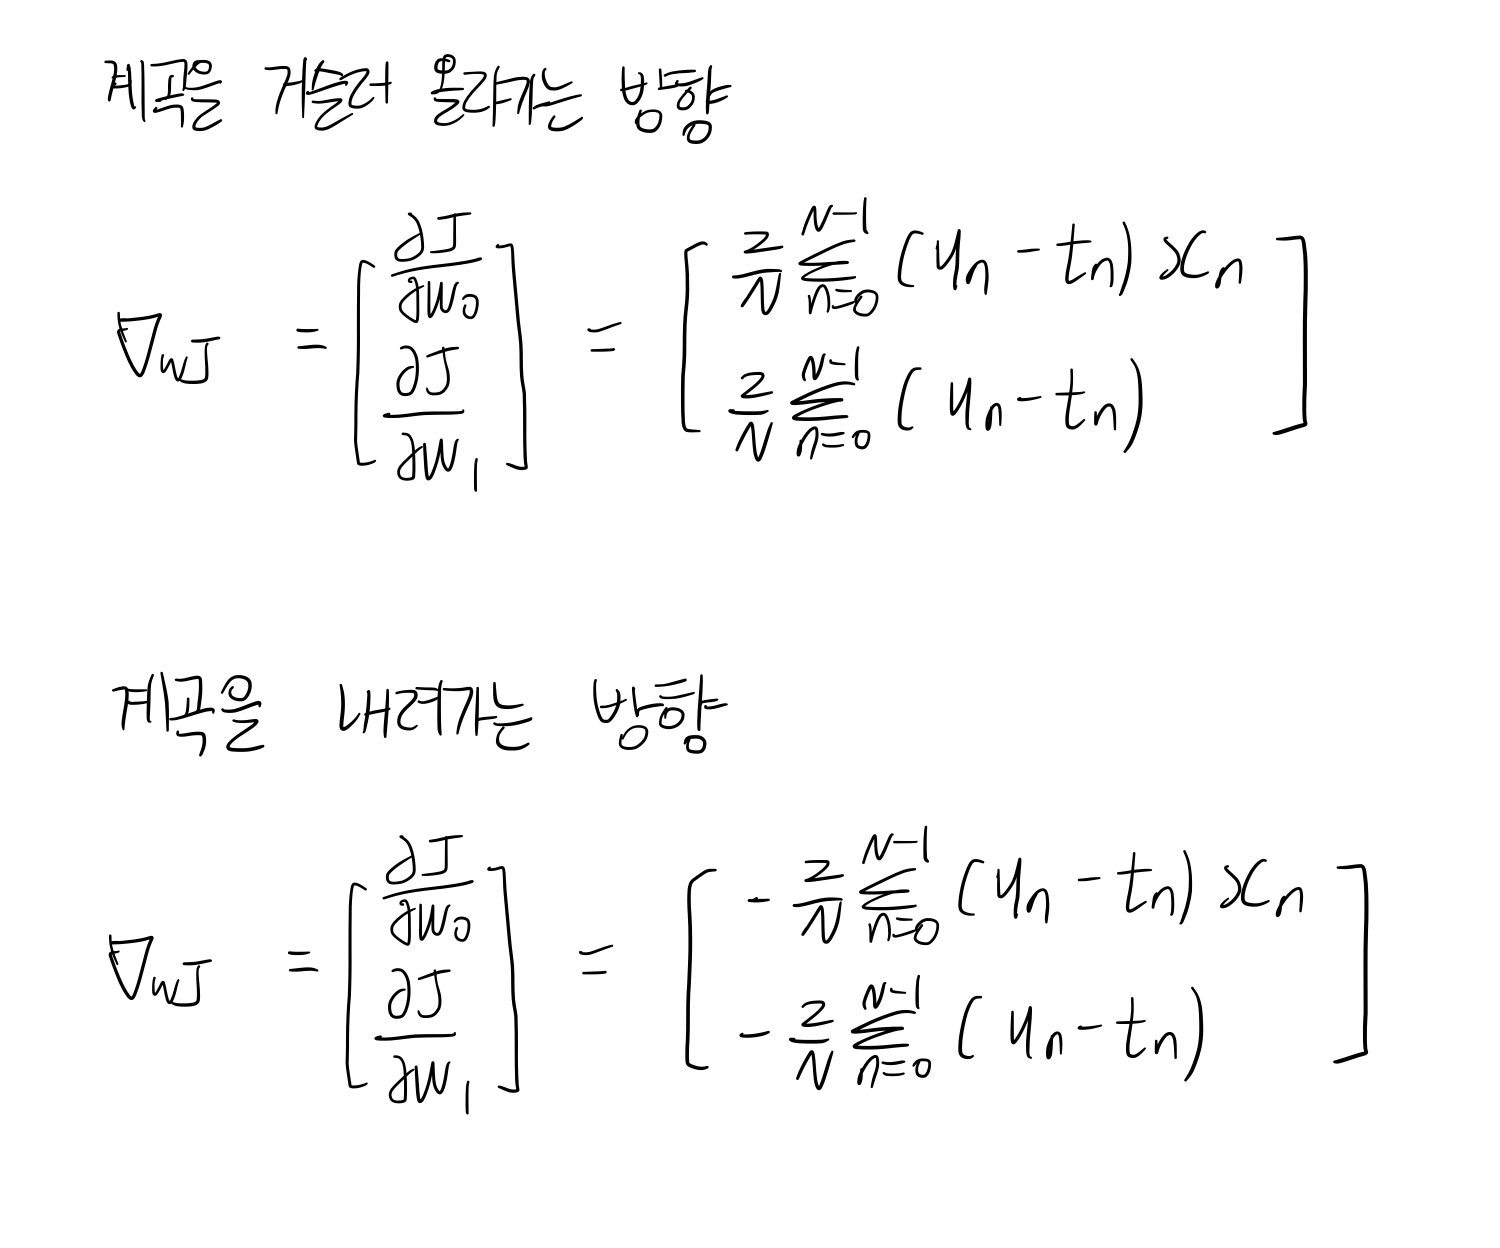 계곡을 거슬러 올라가는 방향
∇wJ = [ ∂J/∂w₀ ; ∂J/∂w₁ ] = [ 2/N Σ_{n=0}^{N-1} (yₙ - tₙ) xₙ ; 2/N Σ_{n=0}^{N-1} (yₙ - tₙ) ]
계곡을 내려가는 방향
∇wJ = [ ∂J/∂w₀ ; ∂J/∂w₁ ] = [ - 2/N Σ_{n=0}^{N-1} (yₙ - tₙ) xₙ ; - 2/N Σ_{n=0}^{N-1} (yₙ - tₙ) ]